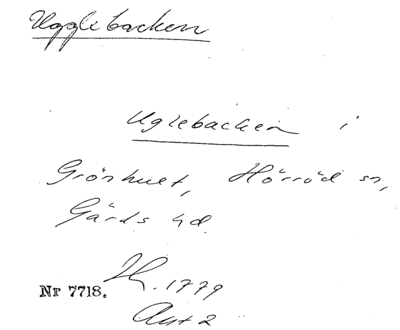 Ugglebacken
Uglebacken i
Grönhult, Hörröd sn,
Gärds hd.
Nr 7718. 1779
Akt 2